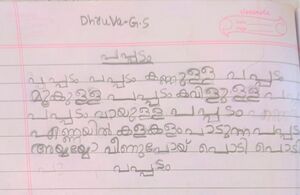 Dhruva-G.S
പപ്പടം
പപ്പടം പപ്പടം കണ്ണുള്ള പപ്പടം
മൂക്കുള്ള പപ്പടം കവിളുള്ള പപ
പപ്പടം വായുള്ള പപ്പടം
എണ്ണയിൽ കളകളം പാടുന്ന പപ്പട
അയ്യയ്യോ വീണുപോയ് പൊടി പൊടി
പപ്പടം